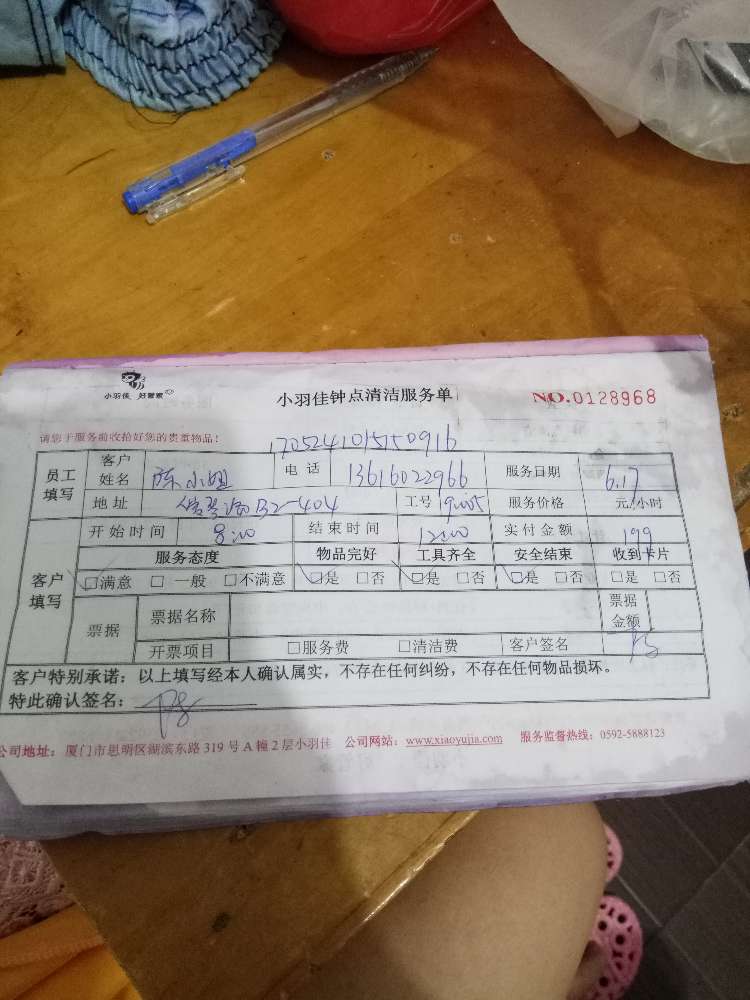 小羽佳 好管家
小羽佳钟点清洁服务单
NO.0128968
请您于服务前收拾好您的贵重物品！
1705241015150916
员工填写 客户姓名 陈小姐 电话 13616022966 服务日期 6.17
地址 B2-404 工号 服务价格 元/小时
客户填写 开始时间 8:00 结束时间 12:00 实付金额 199
服务态度 物品完好 工具齐全 安全结束 收到卡片
□满意 □一般 □不满意 □是 □否 □是 □否 □是 □否 □是 □否
票据 票据名称 票据金额
开票项目 □服务费 □清洁费 客户签名
客户特别承诺：以上填写经本人确认属实，不存在任何纠纷，不存在任何物品损坏。
特此确认签名：
公司地址：厦门市思明区湖滨东路319号A幢2层小羽佳 公司网站：www.xiaoyujia.com 服务监督热线：0592-5888123